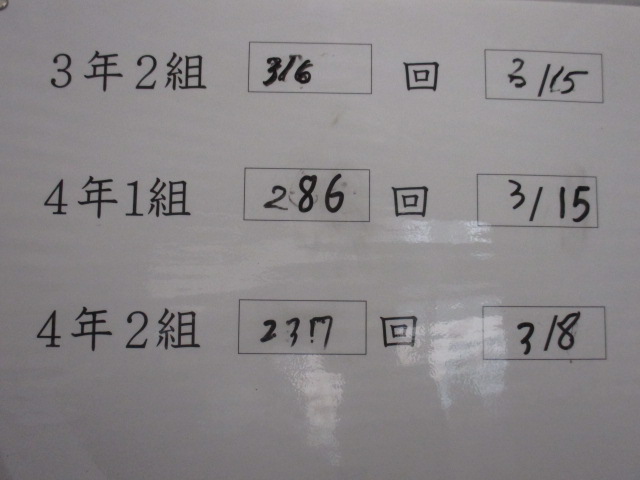 3年2組 316 回 3/15
4年1組 286 回 3/15
4年2組 237 回 3/8